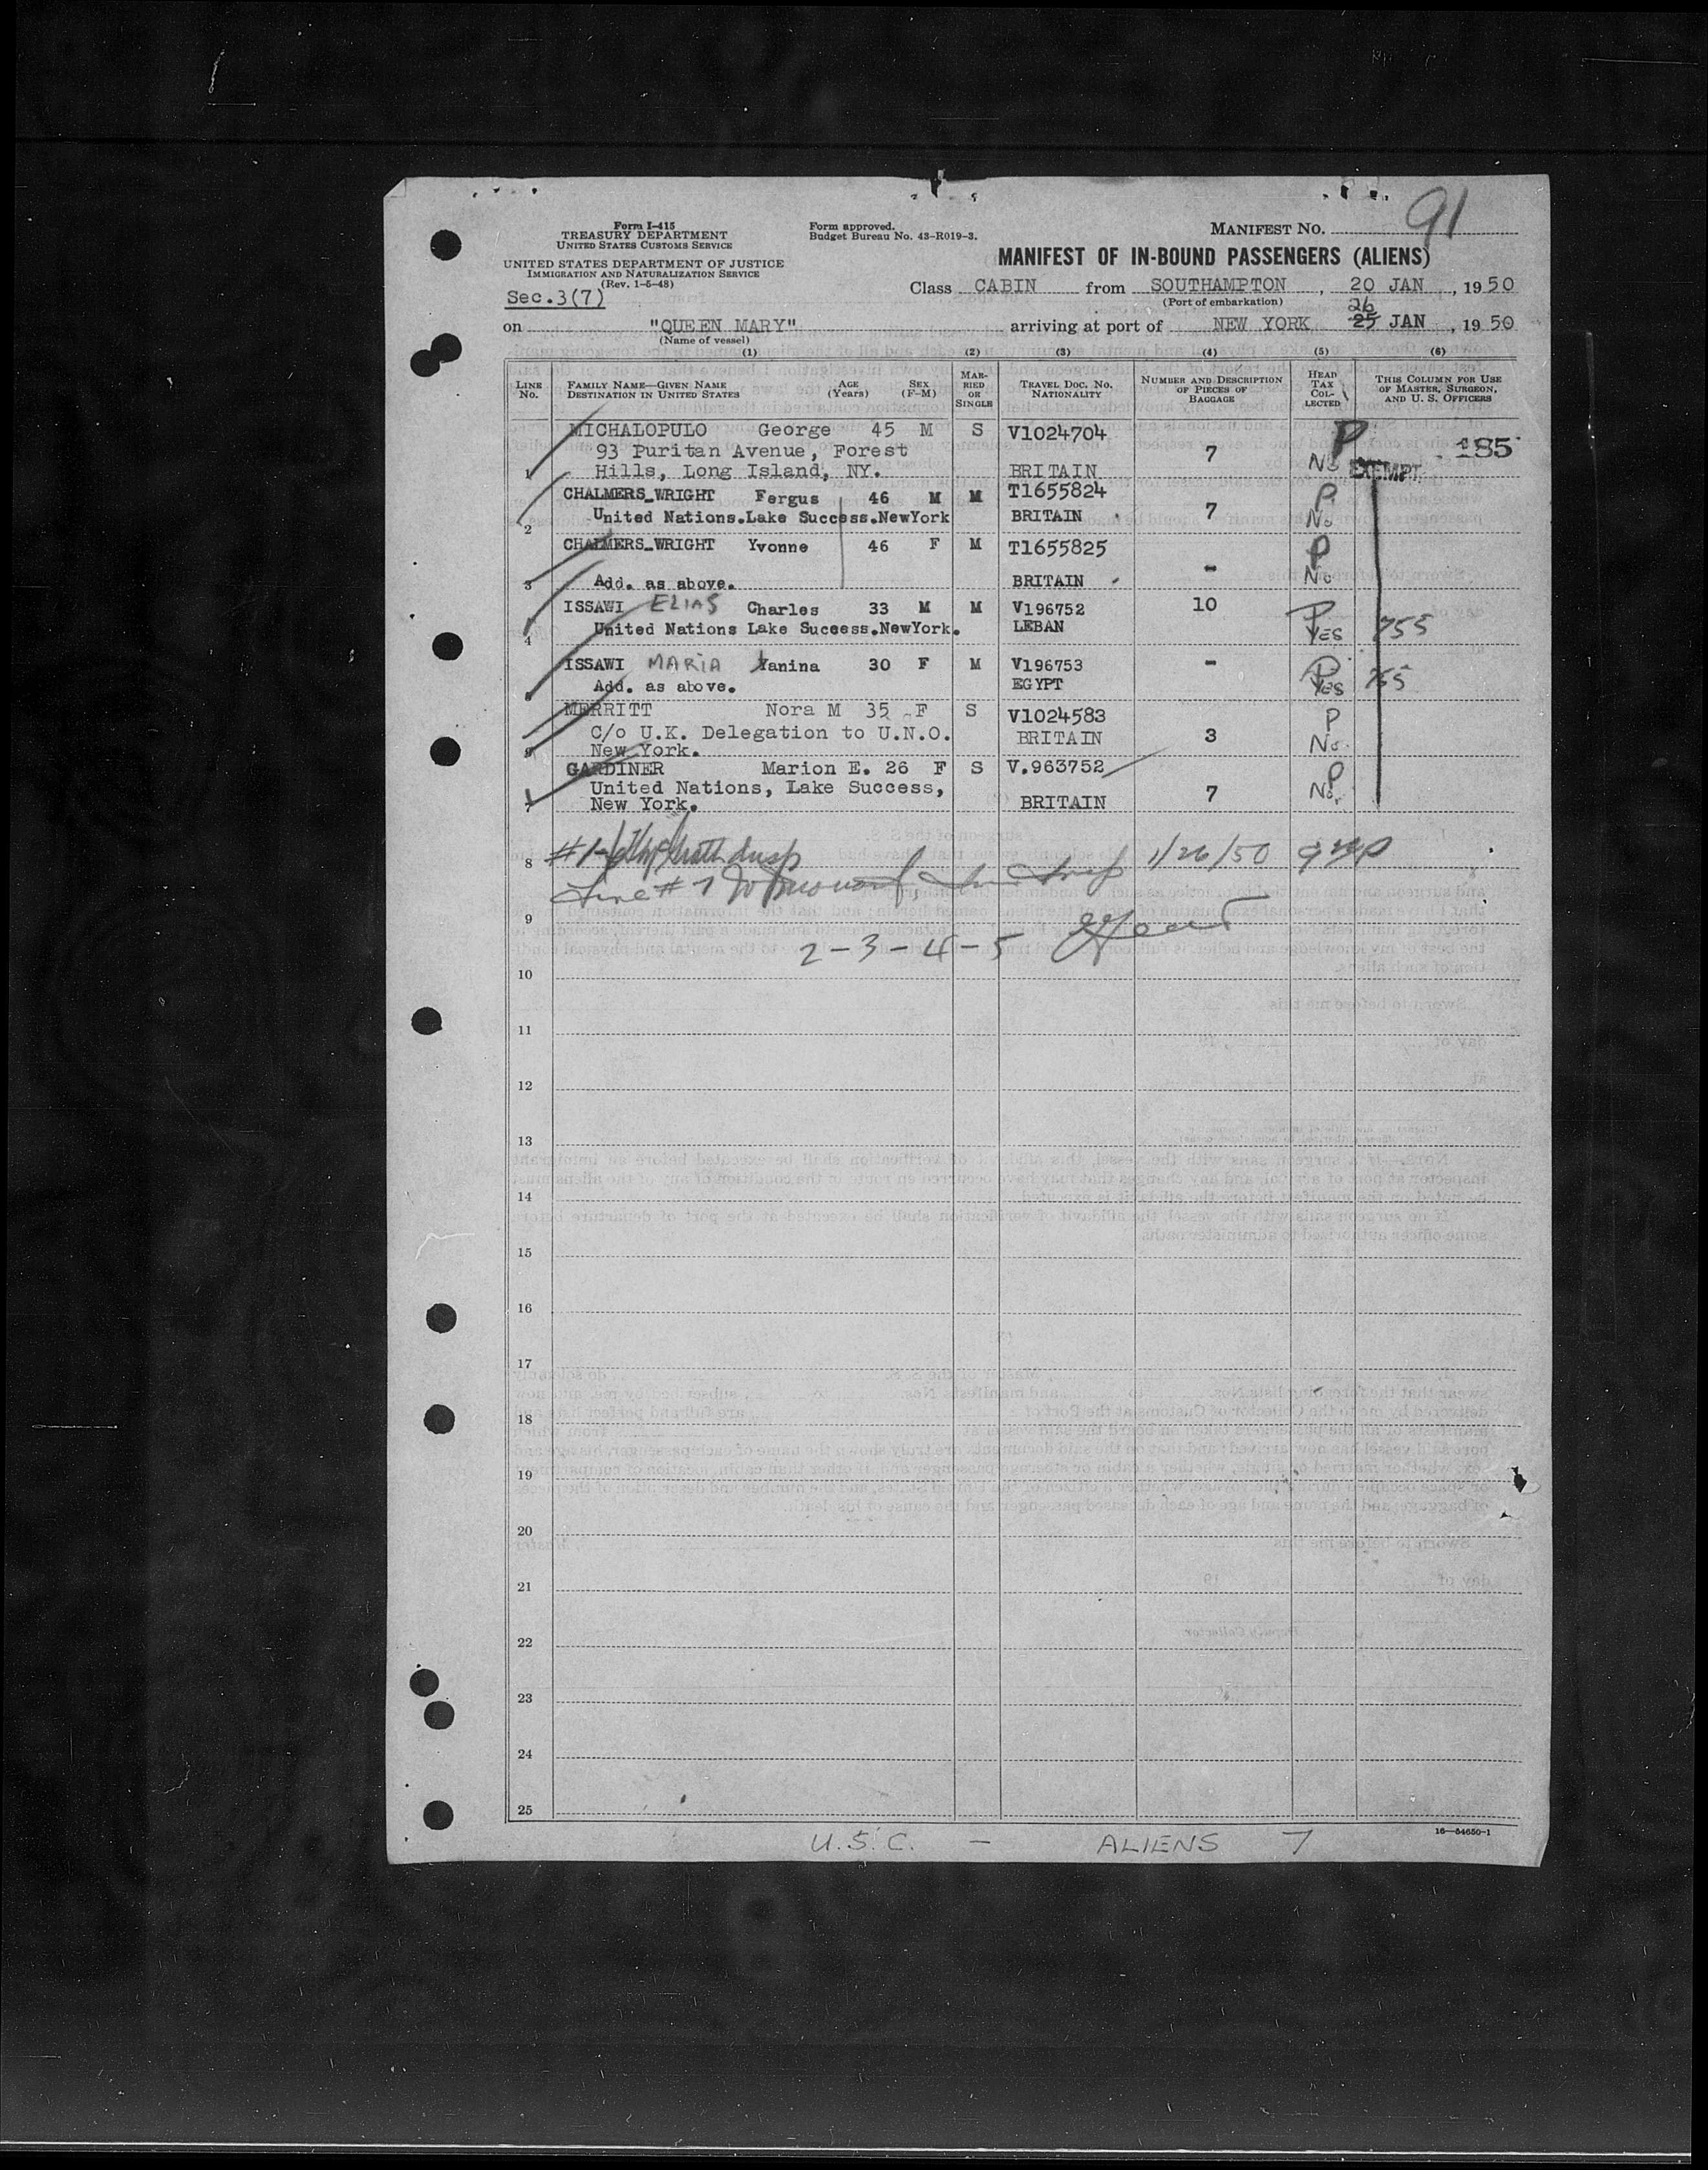 Form I-415
TREASURY DEPARTMENT
UNITED STATES CUSTOMS SERVICE
UNITED STATES DEPARTMENT OF JUSTICE
IMMIGRATION AND NATURALIZATION SERVICE
(Rev. 1-5-48)
Sec.3(7)
Form approved.
Budget Bureau No. 43-R019-3.
MANIFEST NO. 91
MANIFEST OF IN-BOUND PASSENGERS (ALIENS)
Class CABIN from SOUTHAMPTON, 20 JAN, 1950
(Port of embarkation)
26
on "QUEEN MARY" arriving at port of NEW YORK 25 JAN, 1950
(Name of vessel)
(1) (2) (3) (4) (5) (6)
LINE No. FAMILY NAME—GIVEN NAME DESTINATION IN UNITED STATES AGE (Years) SEX (F-M) MARRIED OR SINGLE TRAVEL DOC. NO. NATIONALITY NUMBER AND DESCRIPTION OF PIECES OF BAGGAGE HEAD TAX COLLECTED THIS COLUMN FOR USE OF MASTER, SURGEON, AND U. S. OFFICERS
MICHALOPULO George 45 M S V1024704 P 185
93 Puritan Avenue, Forest 7
1 Hills, Long Island, NY. BRITAIN No EXEMPT
CHALMERS_WRIGHT Fergus 46 M M T1655824 P
2 United Nations.Lake Success.NewYork BRITAIN 7 No
CHALMERS_WRIGHT Yvonne 46 F M T1655825 P
3 Add. as above. BRITAIN - No
ISSAWI ELIAS Charles 33 M M V196752 10 P
4 United Nations Lake Success.NewYork. LEBAN YES 755
ISSAWI MARIA Yanina 30 F M V196753 - P
5 Add. as above. EGYPT YES 755
MERRITT Nora M 35 F S V1024583 P
C/o U.K. Delegation to U.N.O. BRITAIN 3 No.
6 New York.
GARDINER Marion E. 26 F S V.963752 P
United Nations, Lake Success, 7 No.
7 New York. BRITAIN
8 #1-6 Insp 1/26/50
Line #7
9
2-3-4-5
10
11
12
13
14
15
16
17
18
19
20
21
22
23
24
25
16—54650-1
U.S.C. — ALIENS 7